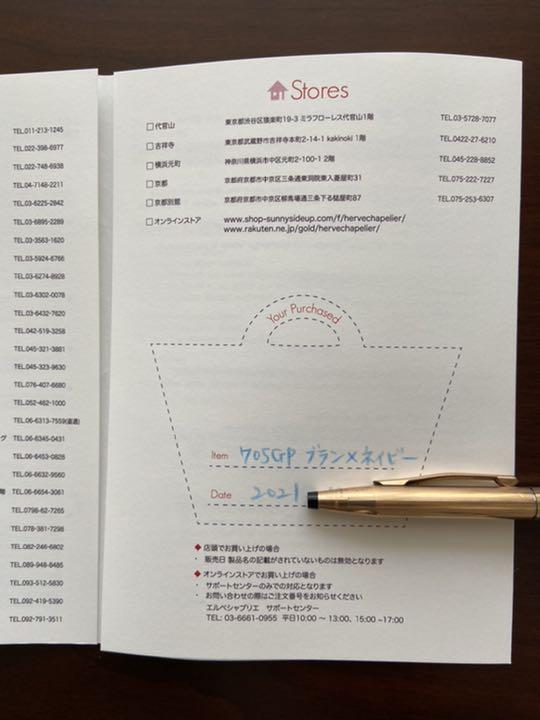 TEL.011-213-1245
TEL.022-398-6977
TEL.022-748-6938
TEL.04-7148-2211
TEL.03-6225-2842
TEL.03-6895-2289
TEL.03-3563-1620
TEL.03-5924-6766
TEL.03-6274-8928
TEL.03-6302-0078
TEL.03-6432-7620
TEL.042-519-3258
TEL.045-321-3881
TEL.045-323-9630
TEL.076-407-6680
TEL.052-462-1000
TEL.06-6313-7559(直通)
グ TEL.06-6345-0431
TEL.06-6453-0828
TEL.06-6632-9560
階 TEL.06-6654-3061
TEL.0798-62-7265
TEL.078-381-7298
TEL.082-246-6802
TEL.089-948-6485
TEL.093-512-5830
TEL.092-419-5390
TEL.092-791-3511
Stores
代官山 東京都渋谷区猿楽町19-3 ミラフローレス代官山1階 TEL.03-5728-7077
吉祥寺 東京都武蔵野市吉祥寺本町2-14-1 kakinoki 1階 TEL.0422-27-6210
横浜元町 神奈川県横浜市中区元町2-100-1 2階 TEL.045-228-8852
京都 京都府京都市中京区三条通東洞院東入菱屋町31 TEL.075-222-7227
京都別館 京都府京都市中京区柳馬場通三条下る槌屋町87 TEL.075-253-6307
オンラインストア www.shop-sunnysideup.com/f/hervechapelier/
www.rakuten.ne.jp/gold/hervechapelier/
Your Purchased
Item 705GP ブラン×ネイビー
Date 2021
◆ 店頭でお買い上げの場合
・ 販売日 製品名の記載がされていないものは無効となります
◆ オンラインストアでお買い上げの場合
・ サポートセンターのみでの対応となります
・ お問い合わせの際はご注文番号をお知らせください
エルベシャプリエ サポートセンター
TEL: 03-6661-0955 平日10:00 ～ 13:00、15:00 ~17:00